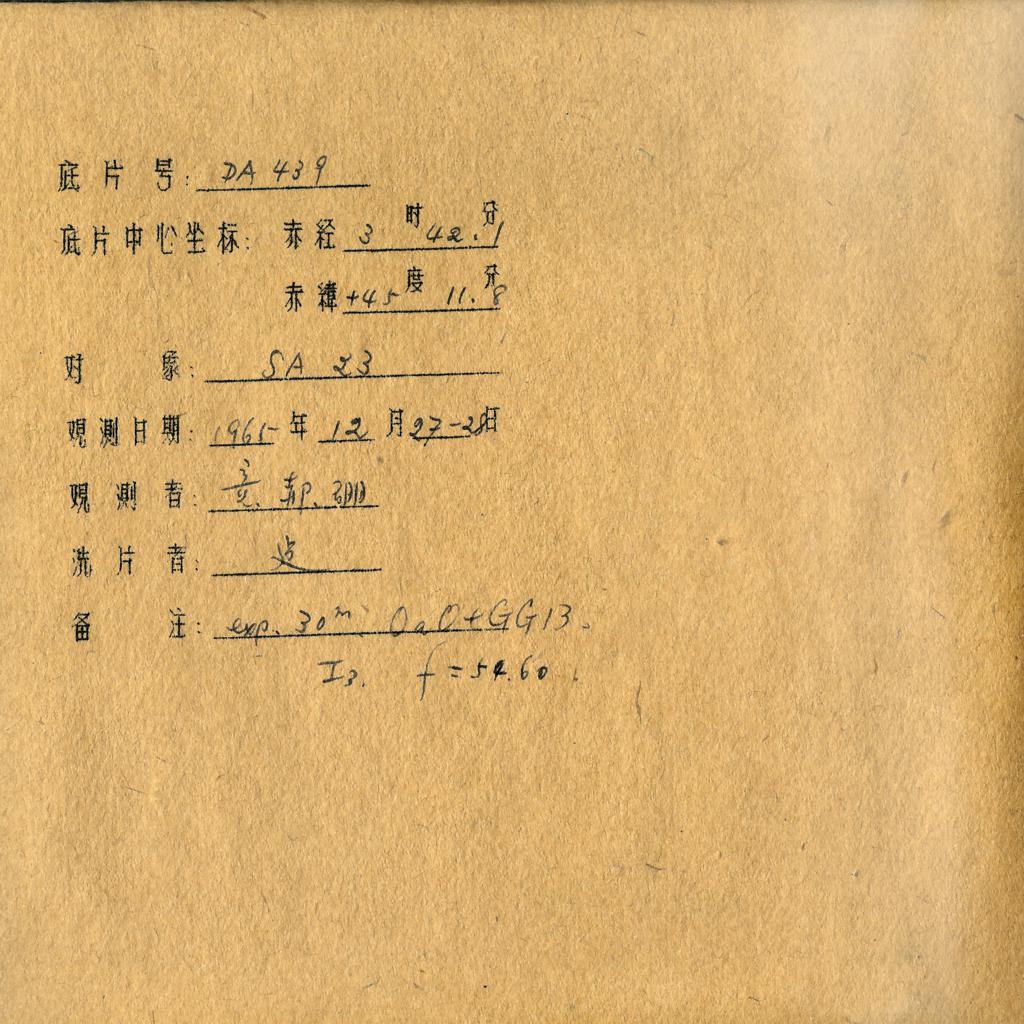 底片号: DA 439
底片中心坐标: 赤经 3时 42.1分
赤纬 +45度 11.8分
对象: SA 23
观测日期: 1965年 12月 27-28日
观测者:
洗片者:
备注: exp. 30m. OaO+GG13.
I3. f=54.60.